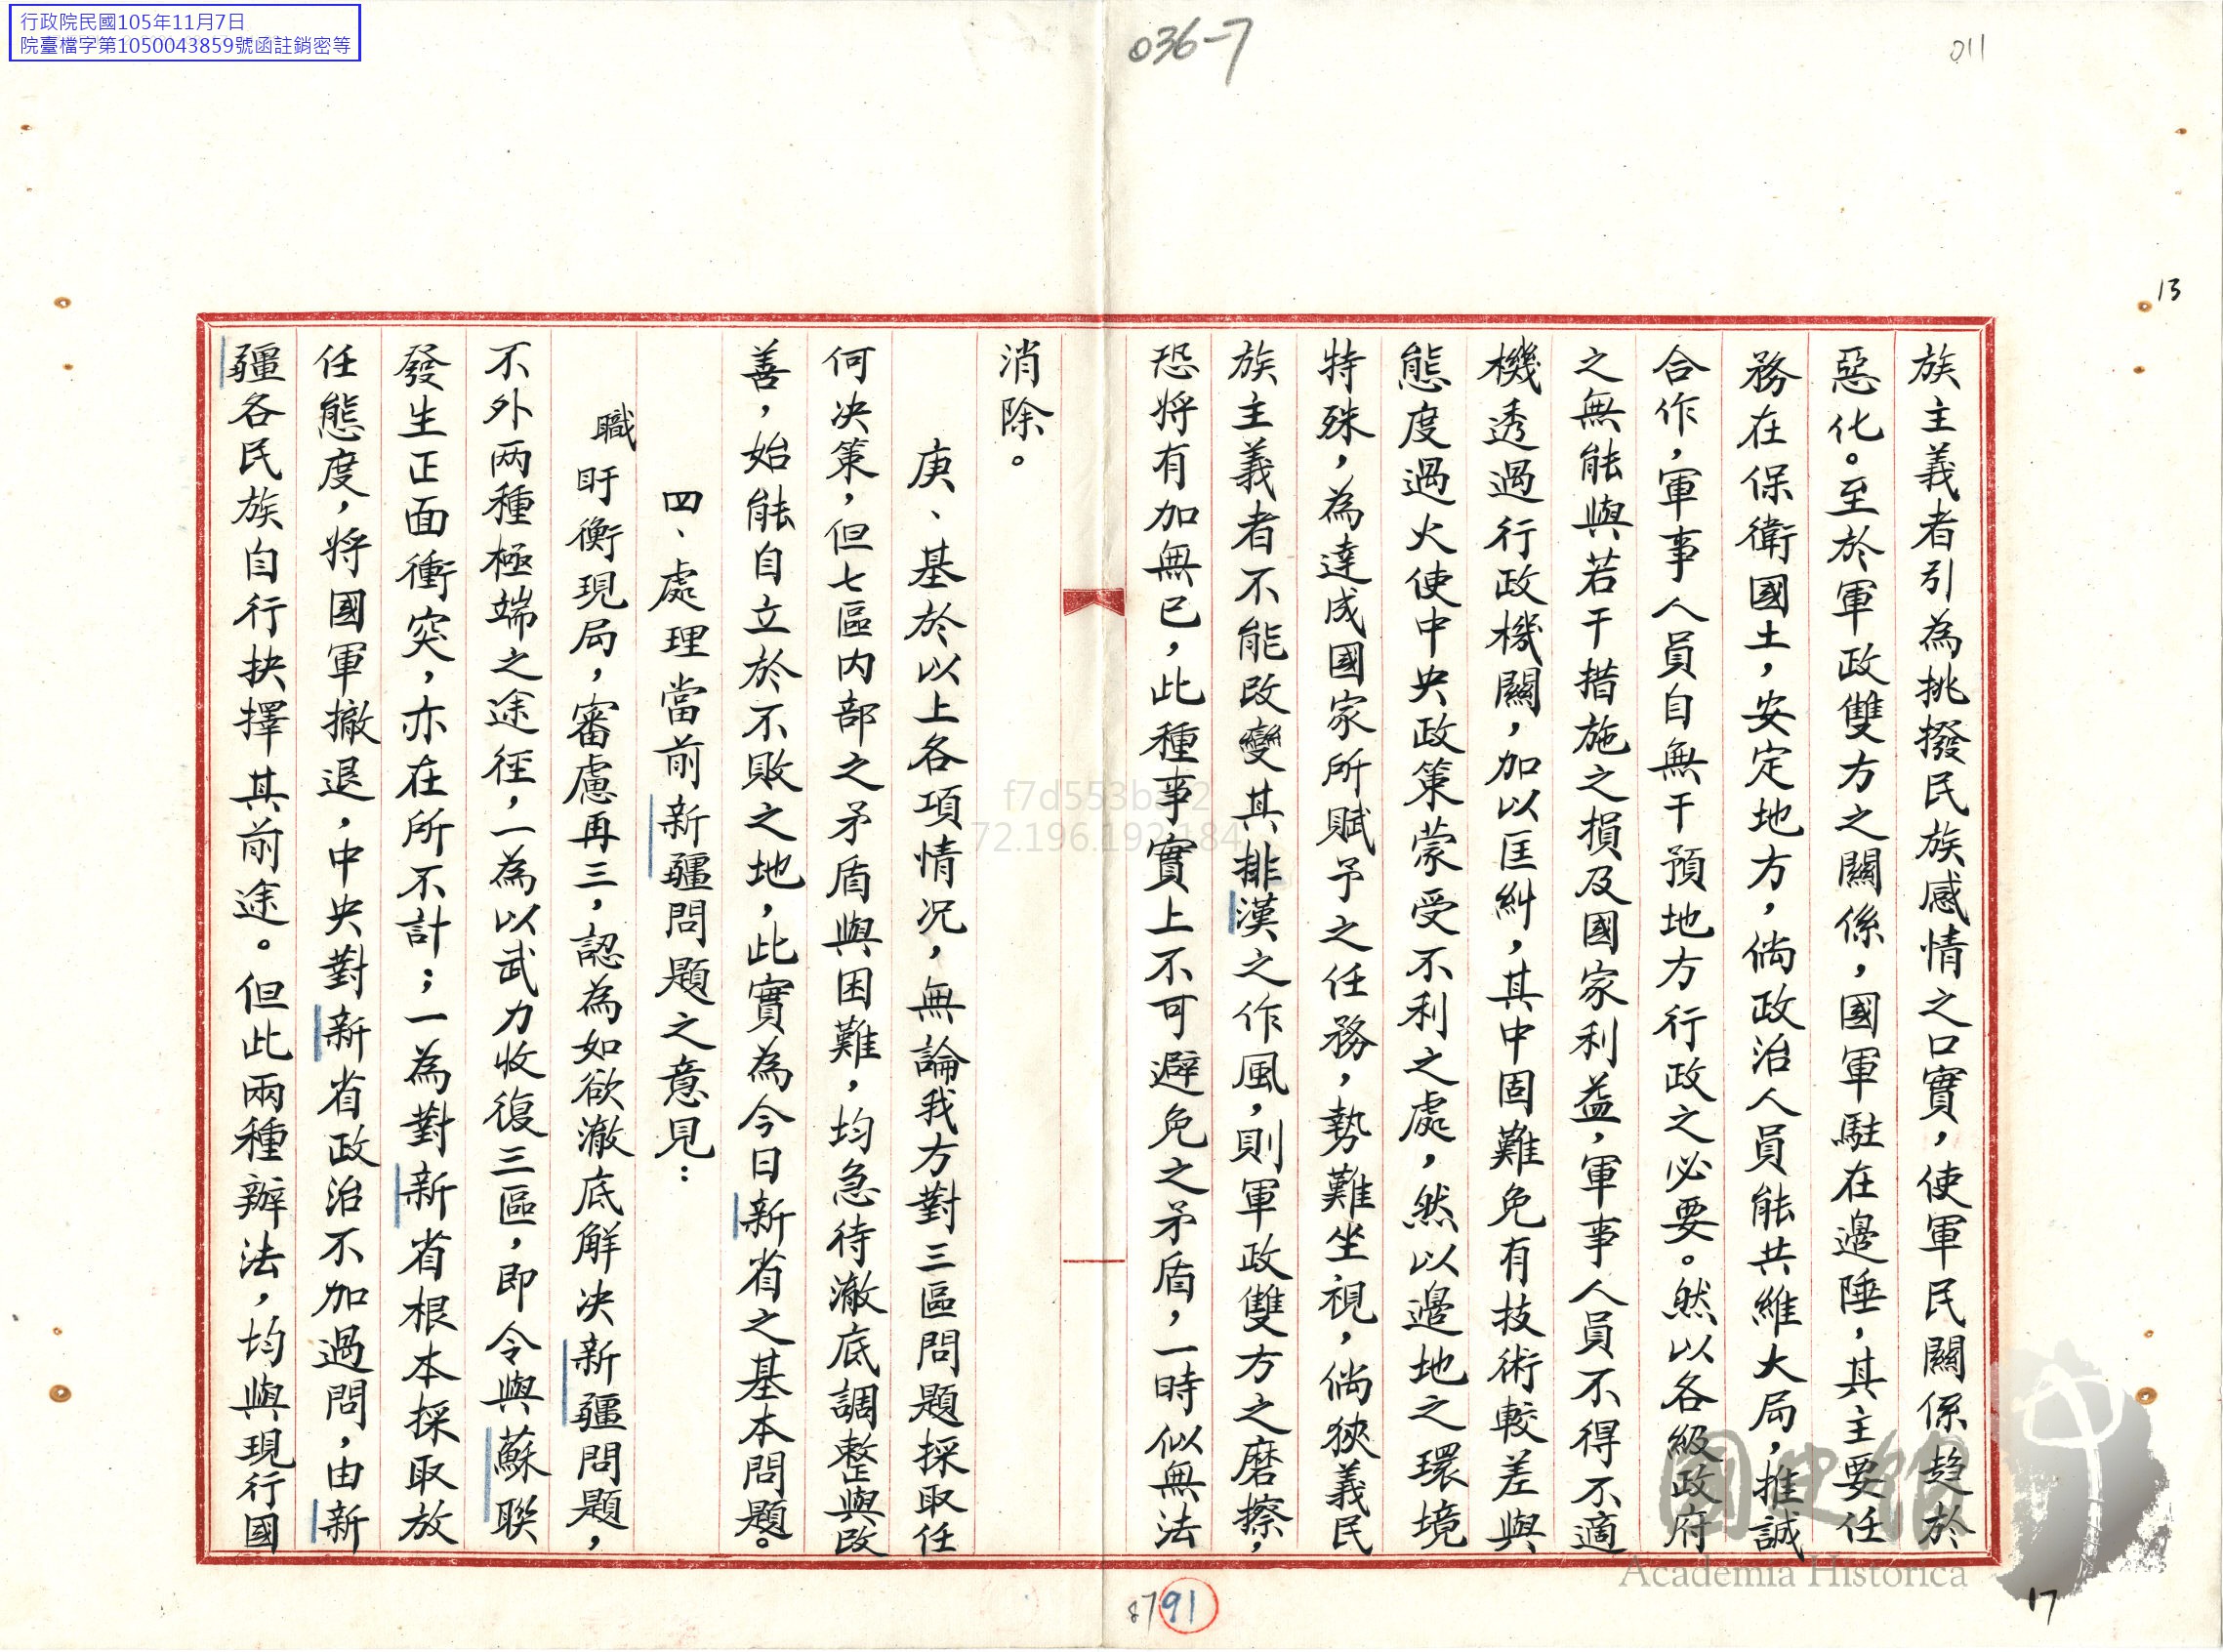 行政院民國105年11月7日
院臺檔字第1050043859號函註銷密等
036-7
011
13
族主義者引為挑撥民族感情之口實，使軍民關係趋於
惡化。至於軍政雙方之關係，國軍駐在邊陲，其主要任
務在保衛國土，安定地方，倘政治人員能共維大局，推誠
合作，軍事人員自無干預地方行政之必要。然以各級政府
之無能與若干措施之損及國家利益，軍事人員不得不適
機透過行政機關，加以匡糾，其中固難免有技術較差與
態度過火使中央政策蒙受不利之處，然以邊地之環境
特殊，為達成國家所賦予之任務，勢難坐視，倘狹義民
族主義者不能改變其排漢之作風，則軍政雙方之磨擦，
恐將有加無已，此種事實上不可避免之矛盾，一時似無法
消除。
庚、基於以上各項情况，無論我方對三區問題採取任
何决策，但七區內部之矛盾與困難，均急待澈底調整與改
善，始能自立於不敗之地，此實為今日新省之基本問題。
四、處理當前新疆問題之意見：
職盱衡現局，審慮再三，認為如欲澈底解决新疆問題，
不外兩種極端之途徑，一為以武力收復三區，即令與蘇聯
發生正面衝突，亦在所不計；一為對新省根本採取放
任態度，將國軍撤退，中央對新省政治不加過問，由新
疆各民族自行抉擇其前途。但此兩種辦法，均與現行國
f7d553ba2
72.196.192.184
國史館
Academia Historica
87
91
17